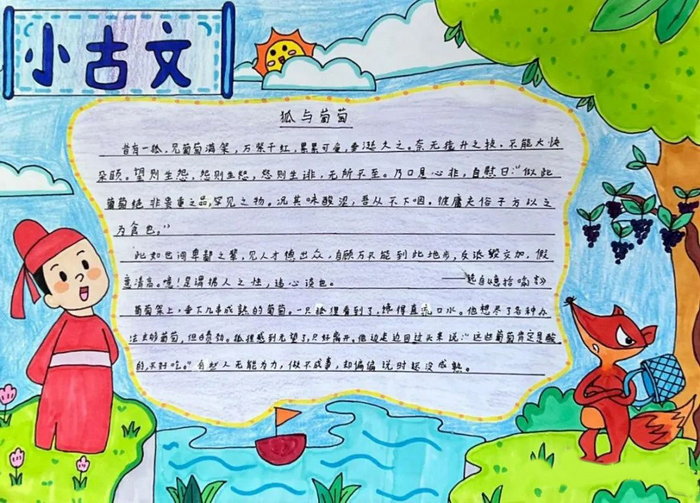 小古文
狐与葡萄
昔有一狐,见葡萄满架,万紫千红,累累可爱,垂涎久之。奈无猿升之技,不能大快
朵颐。望则生怨,怨则生怒,怒则生诽,无所不至。乃口是心非,自慰曰:“似此
葡萄绝非贵重之品,罕见之物。况其味酸涩,吾从不下咽。彼庸夫俗子方以之
为食也。”
此如世间卑鄙之辈,见人才德出众,自顾万不能到此地步,反诋毁交加,假
意清高。噫!是谓拂人之性,违心谈也。
——选自《意拾喻言》
葡萄架上,垂下几串成熟的葡萄。一只狐狸看到了,馋得直流口水。他想尽了各种办
法去够葡萄,但白费劲。狐狸感到无望了,只好离开。他边走边回过头来说:“这些葡萄肯定是酸
的,不好吃。”有些人无能为力,做不成事,却偏偏说时还没成熟。